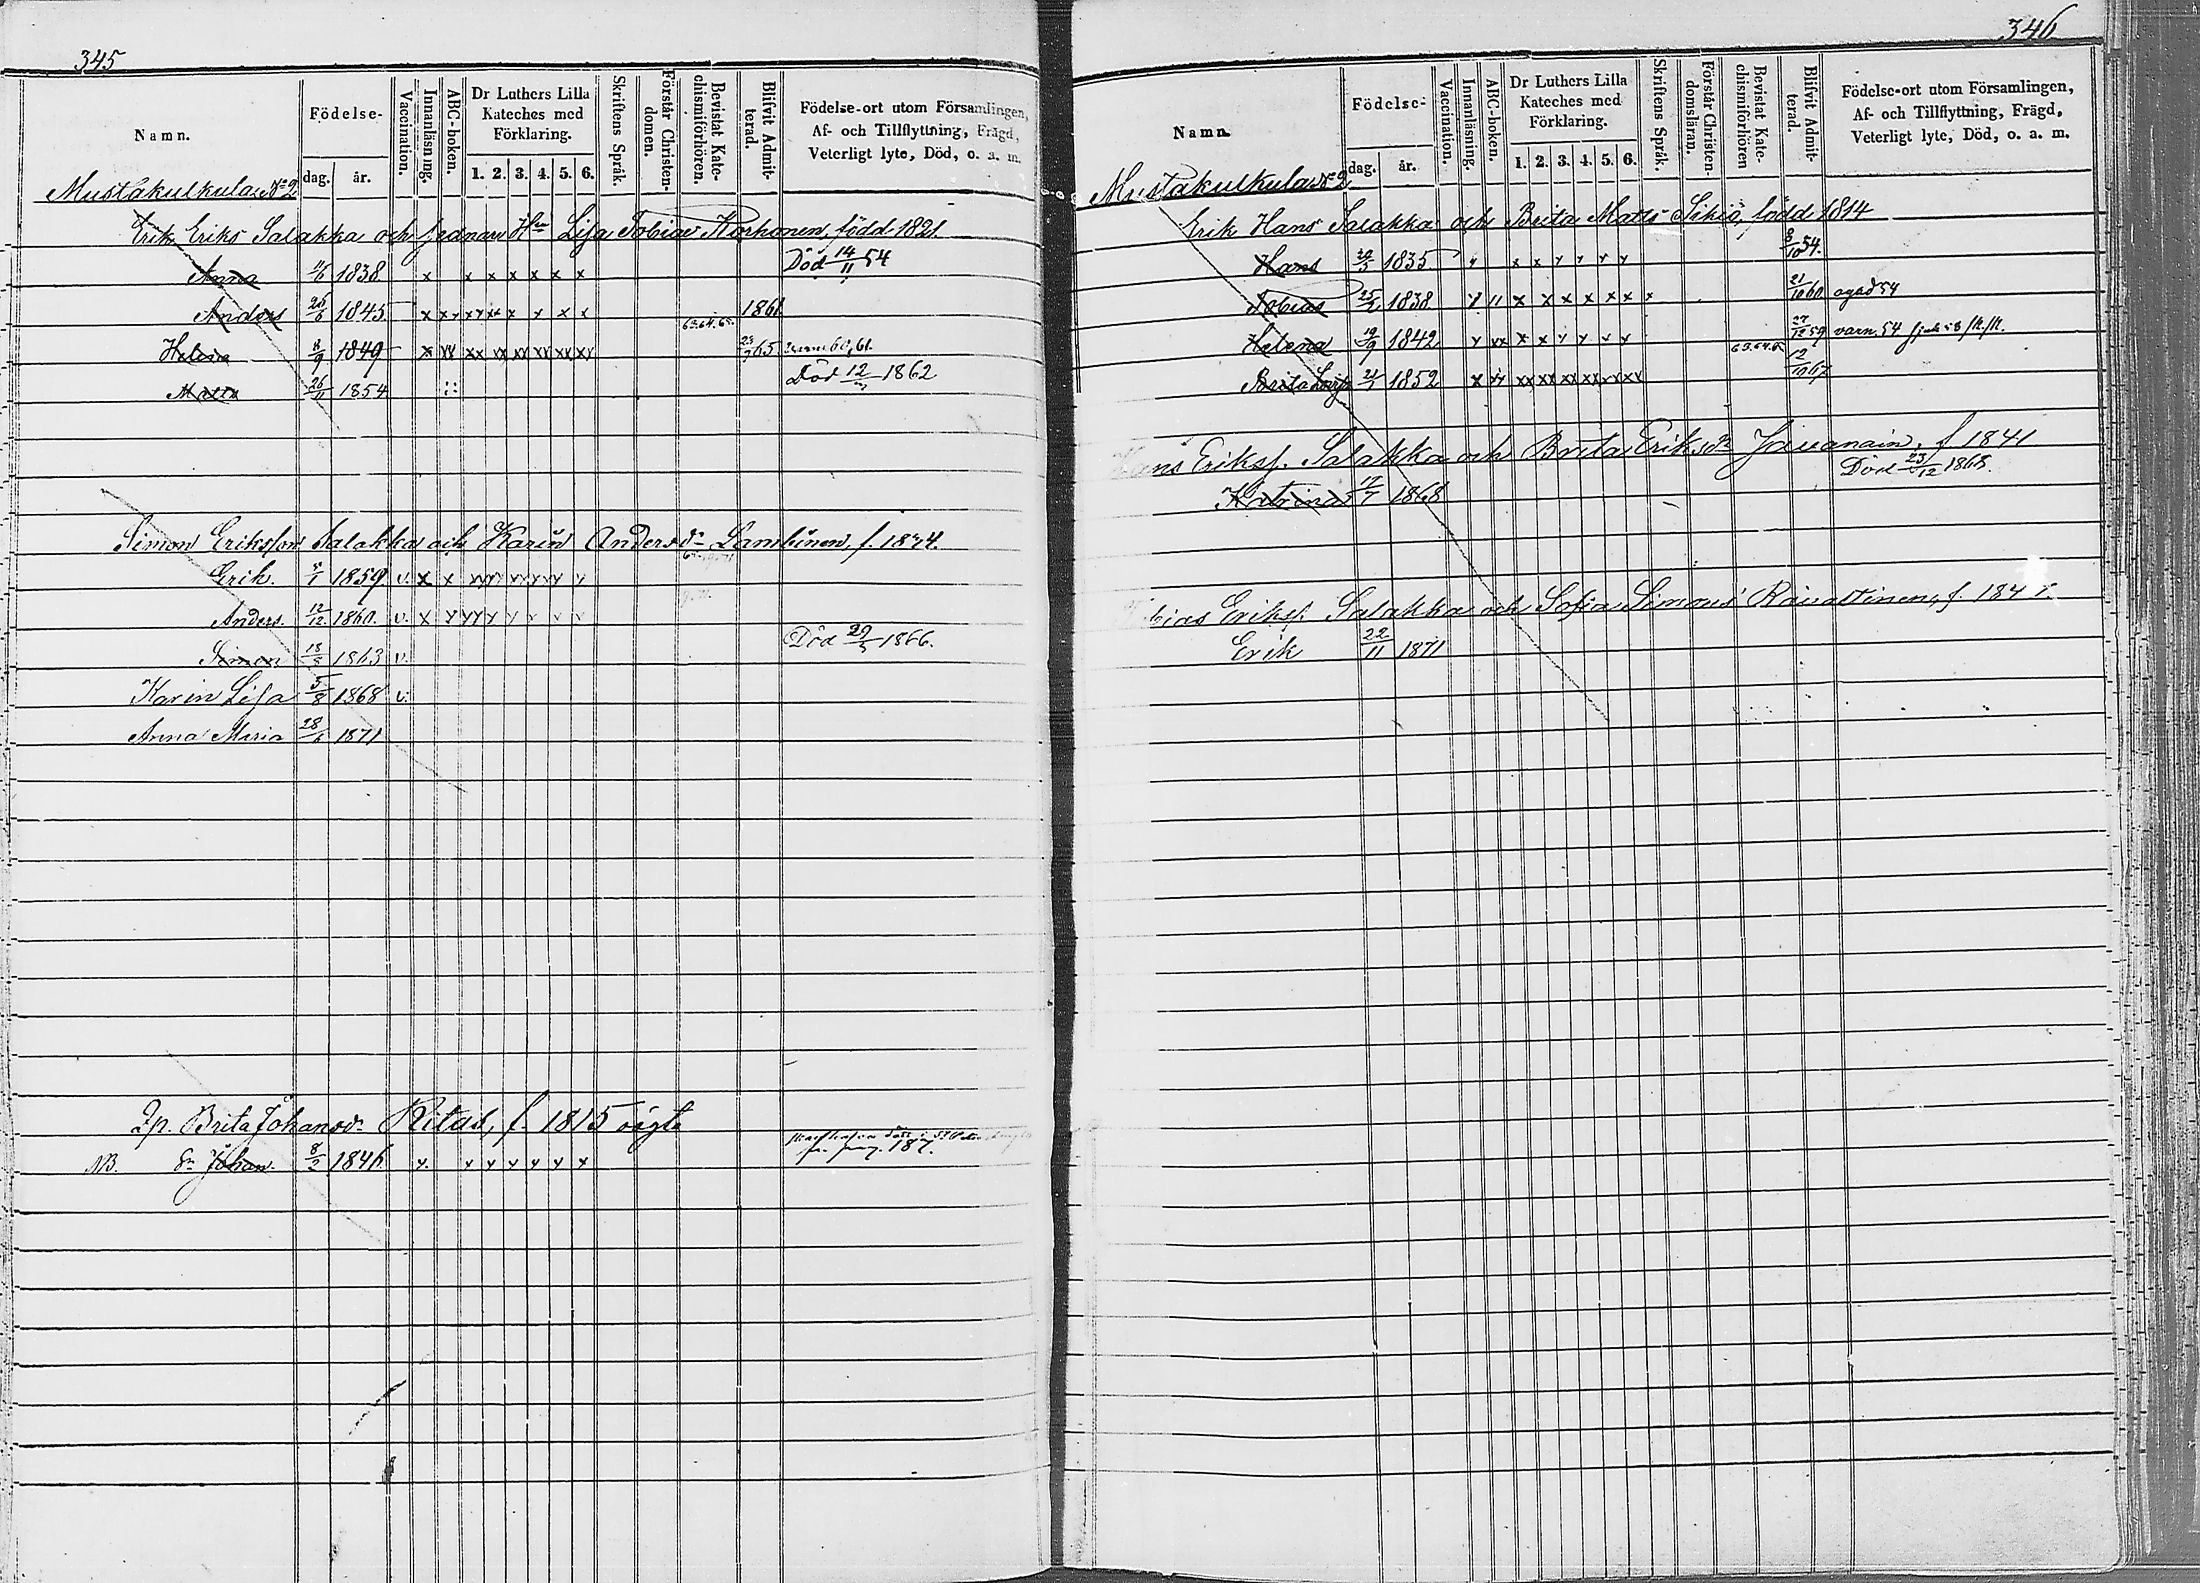 345
Namn.
Födelse-
dag. år.
Vaccination.
Innanläsning.
ABC-boken.
Dr Luthers Lilla Kateches med Förklaring.
1. 2. 3. 4. 5. 6.
Skriftens Språk.
Förstår Christendomen.
Bevistat Katechismiförhören.
Blifvit Admitterad.
Födelse-ort utom Församlingen, Af- och Tillflyttning, Frägd, Veterligt lyte, Död, o. a. m.
Mustakulkula No 2
Erik Eriks Salakka och Lisa Tobias Korhonen, född 1821.
Anna 11/6 1838 x x x x x x x Död 14/11 54
Anders 1845 1861
Helena 8/9 1849 63.64.65. 65
Matts 26/11 1854 Död 12/ 1862
Simon Eriksson Salakka och Karin Andersdr f.
Erik. 1859 v. x x
Anders. 12/12 1860. v. x
Simon 18/8 1863 v. Död 29/5 1866.
Karin Lisa 5/8 1868 v.
Anna Maria 28/6 1871
Brita Johansdr f. 1815
NB. Johan. 8/2 1846 x. x x x x x x
346
Namn.
Födelse-
dag. år.
Vaccination.
Innanläsning.
ABC-boken.
Dr Luthers Lilla Kateches med Förklaring.
1. 2. 3. 4. 5. 6.
Skriftens Språk.
Förstår Christendomsläran.
Bevistat Katechismiförhören
Blifvit Admitterad.
Födelse-ort utom Församlingen, Af- och Tillflyttning, Frägd, Veterligt lyte, Död, o. a. m.
Mustakulkula No 2
Erik Hans Salakka och Brita Matts Sikiö, född 1814
Hans 1835 8/10 54.
Tobias 25/2 1838 21/10 60
Helena 19/9 1842 59 varn. 54
Brita 1852 12/10 67
Hans Erikss. Salakka och Brita Eriksdr f 1841
Katrina 17/7 1868 Död 23/12 1868.
Tobias Erikss. Salakka och Sofia Simons f.
Erik 22/11 1871